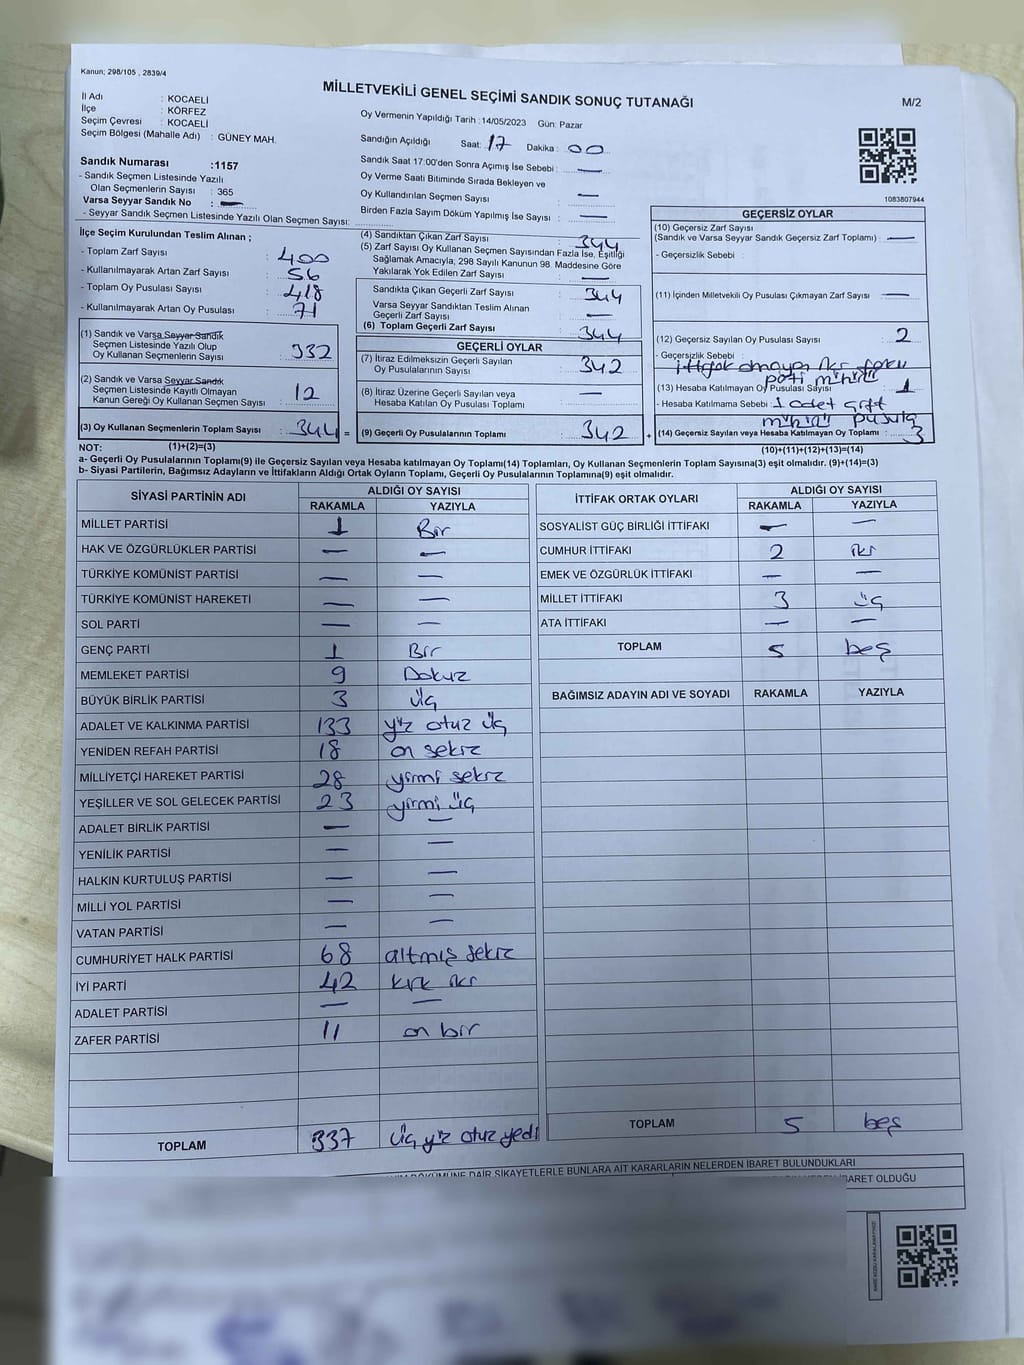 Kanun; 298/105 , 2839/4
MİLLETVEKİLİ GENEL SEÇİMİ SANDIK SONUÇ TUTANAĞI
M/2
İl Adı : KOCAELİ
İlçe : KÖRFEZ
Seçim Çevresi : KOCAELİ
Seçim Bölgesi (Mahalle Adı) : GÜNEY MAH.
Oy Vermenin Yapıldığı Tarih :14/05/2023 Gün: Pazar
Sandığın Açıldığı Saat: 17 Dakika: 00
Sandık Saat 17:00'den Sonra Açımış İse Sebebi : —
Oy Verme Saati Bitiminde Sırada Bekleyen ve
Oy Kullandırılan Seçmen Sayısı : —
Birden Fazla Sayım Döküm Yapılmış İse Sayısı : —
1083807944
Sandık Numarası :1157
- Sandık Seçmen Listesinde Yazılı
Olan Seçmenlerin Sayısı : 365
Varsa Seyyar Sandık No : —
- Seyyar Sandık Seçmen Listesinde Yazılı Olan Seçmen Sayısı:
İlçe Seçim Kurulundan Teslim Alınan ;
- Toplam Zarf Sayısı : 400
- Kullanılmayarak Artan Zarf Sayısı : 56
- Toplam Oy Pusulası Sayısı : 418
- Kullanılmayarak Artan Oy Pusulası : 71
(1) Sandık ve Varsa Seyyar Sandık
Seçmen Listesinde Yazılı Olup
Oy Kullanan Seçmenlerin Sayısı : 332
(2) Sandık ve Varsa Seyyar Sandık
Seçmen Listesinde Kayıtlı Olmayan
Kanun Gereği Oy Kullanan Seçmen Sayısı : 12
(3) Oy Kullanan Seçmenlerin Toplam Sayısı : 344 =
(4) Sandıktan Çıkan Zarf Sayısı : 344
(5) Zarf Sayısı Oy Kullanan Seçmen Sayısından Fazla İse, Eşitliği
Sağlamak Amacıyla, 298 Sayılı Kanunun 98. Maddesine Göre
Yakılarak Yok Edilen Zarf Sayısı : —
Sandıkta Çıkan Geçerli Zarf Sayısı : 344
Varsa Seyyar Sandıktan Teslim Alınan
Geçerli Zarf Sayısı : —
(6) Toplam Geçerli Zarf Sayısı : 344
GEÇERLİ OYLAR
(7) İtiraz Edilmeksizin Geçerli Sayılan
Oy Pusulalarının Sayısı : 342
(8) İtiraz Üzerine Geçerli Sayılan veya
Hesaba Katılan Oy Pusulası Toplamı : —
(9) Geçerli Oy Pusulalarının Toplamı : 342 +
GEÇERSİZ OYLAR
(10) Geçersiz Zarf Sayısı
(Sandık ve Varsa Seyyar Sandık Geçersiz Zarf Toplamı) : —
- Geçersizlik Sebebi :
(11) İçinden Milletvekili Oy Pusulası Çıkmayan Zarf Sayısı : —
(12) Geçersiz Sayılan Oy Pusulası Sayısı : 2
- Geçersizlik Sebebi :
ittifak olmayan iki
mühürlü
(13) Hesaba Katılmayan Oy Pusulası Sayısı : 1
- Hesaba Katılmama Sebebi : 1 adet çift
mühürlü pusula
(14) Geçersiz Sayılan veya Hesaba Katılmayan Oy Toplamı : 3
NOT: (1)+(2)=(3)
(10)+(11)+(12)+(13)=(14)
a- Geçerli Oy Pusulalarının Toplamı(9) ile Geçersiz Sayılan veya Hesaba katılmayan Oy Toplamı(14) Toplamları, Oy Kullanan Seçmenlerin Toplam Sayısına(3) eşit olmalıdır. (9)+(14)=(3)
b- Siyasi Partilerin, Bağımsız Adayların ve İttifakların Aldığı Ortak Oyların Toplamı, Geçerli Oy Pusulalarının Toplamına(9) eşit olmalıdır.
SİYASİ PARTİNİN ADI ALDIĞI OY SAYISI
RAKAMLA YAZIYLA
MİLLET PARTİSİ 1 Bir
HAK VE ÖZGÜRLÜKLER PARTİSİ — —
TÜRKİYE KOMÜNİST PARTİSİ — —
TÜRKİYE KOMÜNİST HAREKETİ — —
SOL PARTİ — —
GENÇ PARTİ 1 Bir
MEMLEKET PARTİSİ 9 Dokuz
BÜYÜK BİRLİK PARTİSİ 3 Üç
ADALET VE KALKINMA PARTİSİ 133 yüz otuz üç
YENİDEN REFAH PARTİSİ 18 on sekiz
MİLLİYETÇİ HAREKET PARTİSİ 28 yirmi sekiz
YEŞİLLER VE SOL GELECEK PARTİSİ 23 yirmi üç
ADALET BİRLİK PARTİSİ — —
YENİLİK PARTİSİ — —
HALKIN KURTULUŞ PARTİSİ — —
MİLLİ YOL PARTİSİ — —
VATAN PARTİSİ — —
CUMHURİYET HALK PARTİSİ 68 altmış sekiz
İYİ PARTİ 42 kırk iki
ADALET PARTİSİ — —
ZAFER PARTİSİ 11 on bir
TOPLAM 337 Üç yüz otuz yedi
İTTİFAK ORTAK OYLARI ALDIĞI OY SAYISI
RAKAMLA YAZIYLA
SOSYALİST GÜÇ BİRLİĞİ İTTİFAKI — —
CUMHUR İTTİFAKI 2 iki
EMEK VE ÖZGÜRLÜK İTTİFAKI — —
MİLLET İTTİFAKI 3 üç
ATA İTTİFAKI — —
TOPLAM 5 beş
BAĞIMSIZ ADAYIN ADI VE SOYADI RAKAMLA YAZIYLA
TOPLAM 5 beş
DÖKÜMÜNE DAİR ŞİKAYETLERLE BUNLARA AİT KARARLARIN NELERDEN İBARET BULUNDUKLARI
İBARET OLDUĞU